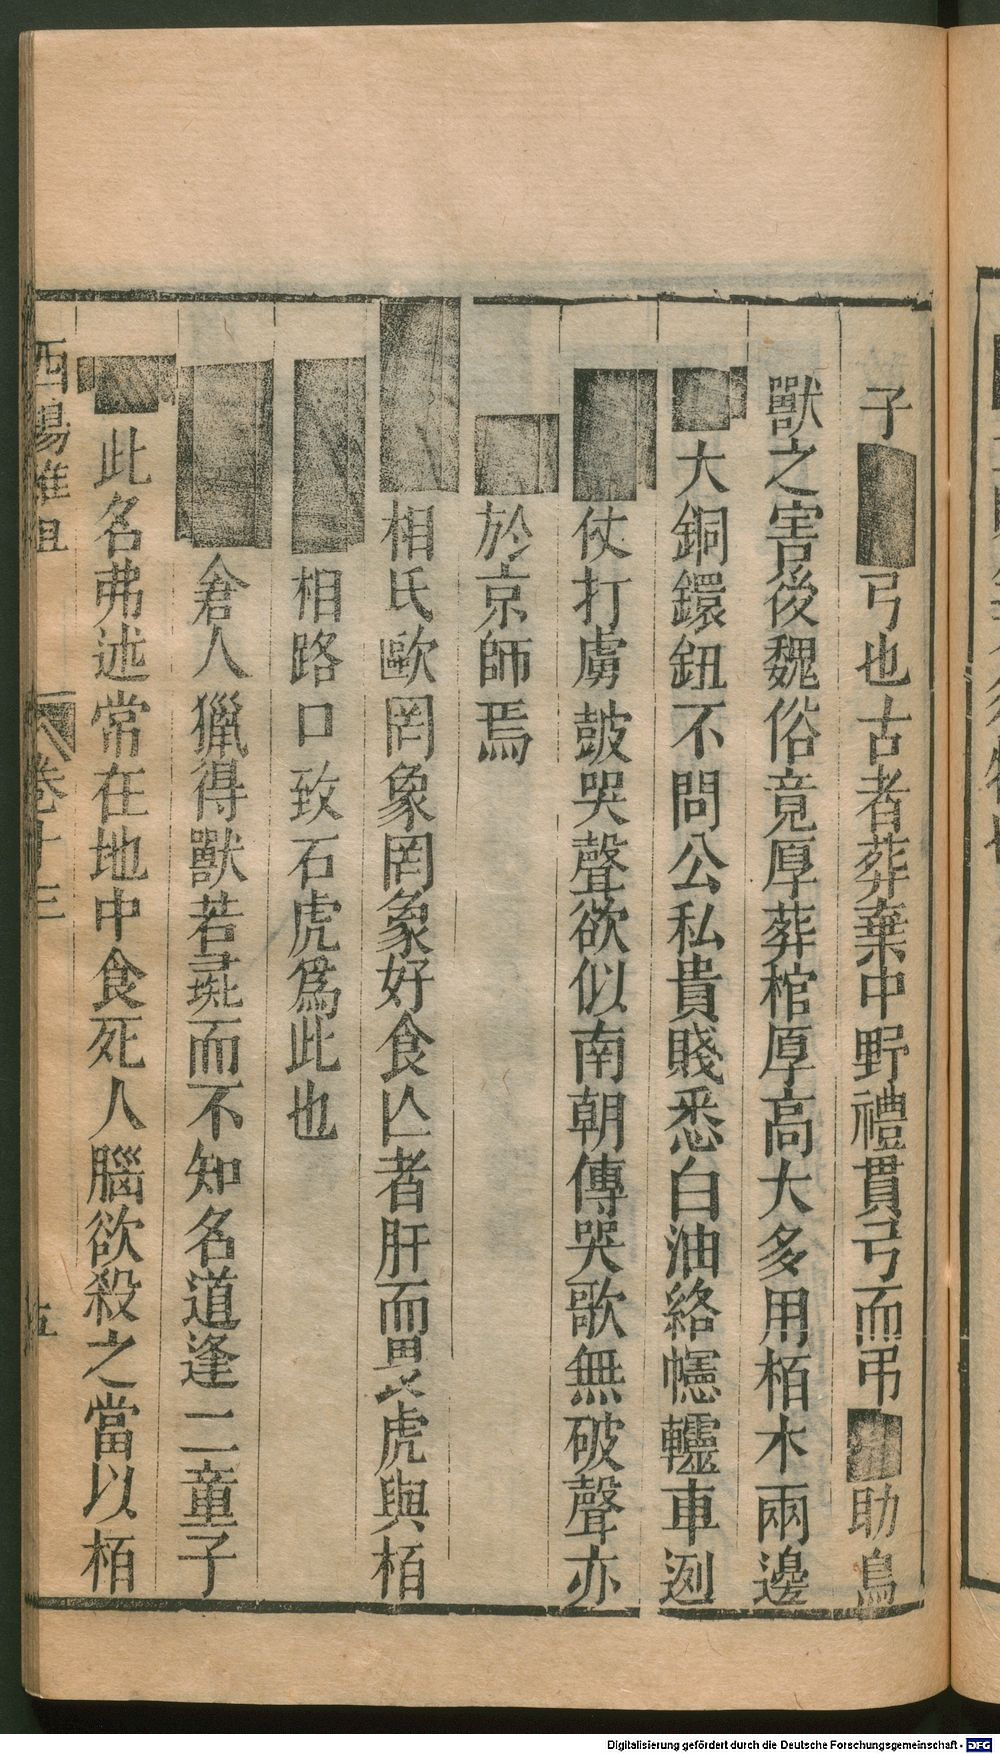 子弓也古者葬棄中野禮貫弓而弔助鳥
獸之害後魏俗竟厚葬棺厚高大多用栢木兩邊
大銅鐶鈕不問公私貴賤悉白油絡幰轜車迾
仗打虜皷哭聲欲似南朝傳哭歌無破聲亦
於京師焉
相氏歐罔象罔象好食亾者肝而畏虎與栢
相路口致石虎爲此也
倉人獵得獸若彘而不知名道逢二童子
此名弗述常在地中食死人腦欲殺之當以栢
酉陽雜俎 卷十三 五
Digitalisierung gefördert durch die Deutsche Forschungsgemeinschaft - DFG